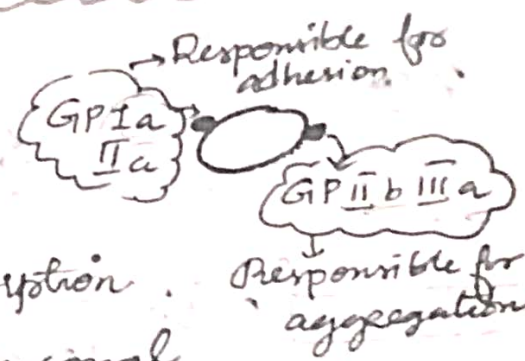 → Responsible for
adhesion.
GP Ia
IIa
GP II b III a
Responsible for
aggregation